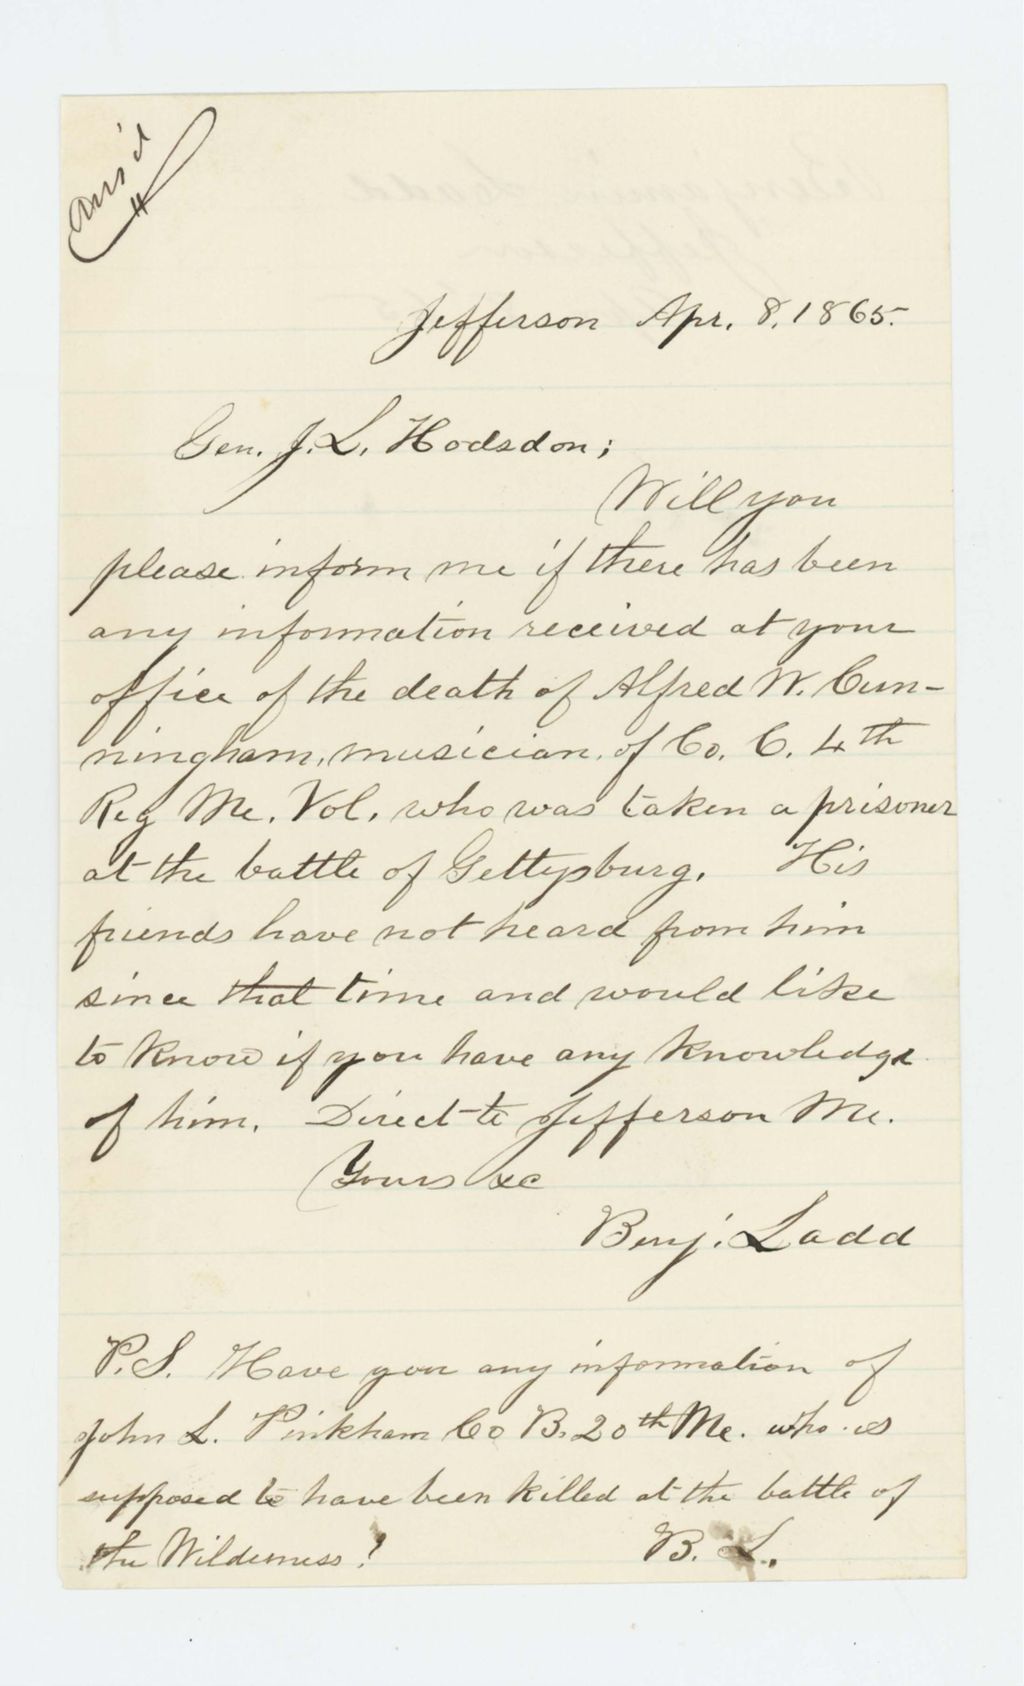 ans'd
Jefferson Apr. 8, 1865.
Gen. J. L. Hodsdon;
Will you
please inform me if there has been
any information received at your
office of the death of Alfred W. Cun-
ningham, musician, of Co. C. 4th
Reg Me. Vol. who was taken a prisoner
at the battle of Gettysburg. His
friends have not heard from him
since that time and would like
to know if you have any knowledge
of him. Direct to Jefferson Me.
Yours &c
Benj. Ladd
P.S. Have you any information of
John L. Pinkham Co B. 20th Me. who is
supposed to have been killed at the battle of
the Wilderness?
B. L.